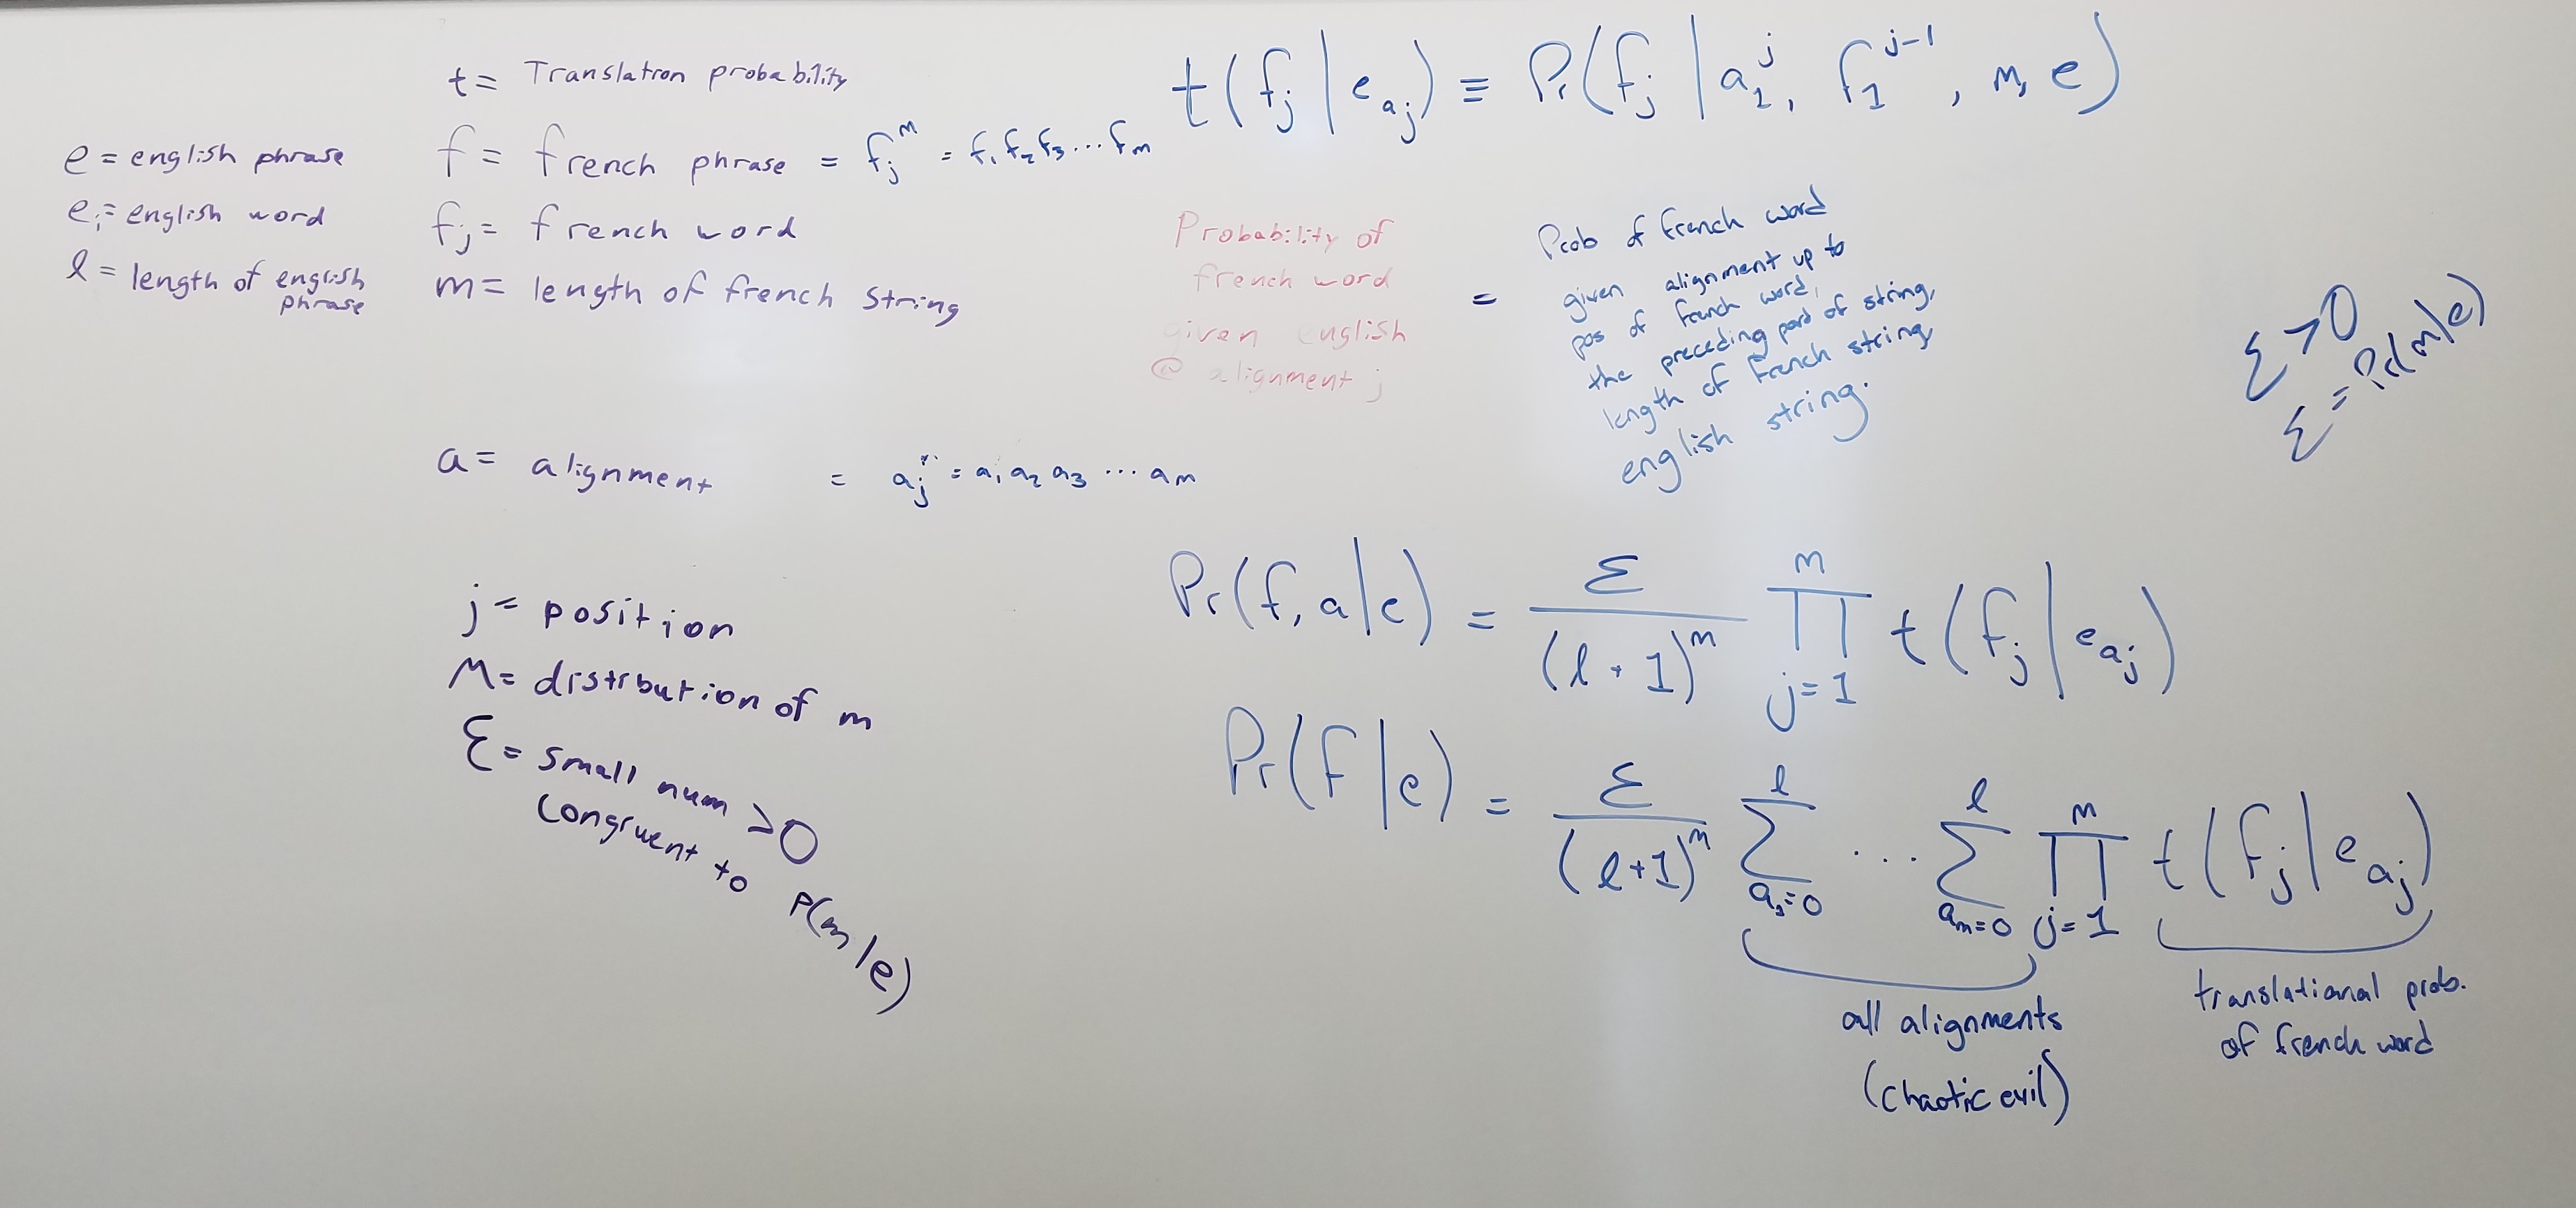 t = Translation probability
e = english phrase
e_i = english word
l = length of english
phrase
f = french phrase = f_j^m = f_1 f_2 f_3 ... f_m
f_j = french word
m = length of french string
a = alignment = a_j = a_1 a_2 a_3 ... a_m
j = position
M = distribution of m
Ɛ = small num > 0
congruent to P(m|e)
t(f_j | e_{a_j}) ≡ Pr(f_j | a_1^j, f_1^{j-1}, m, e)
Probability of
french word
given english
@ alignment j
=
Prob of french word
given alignment up to
pos of french word,
the preceding part of string,
length of french string,
english string.
Ɛ > 0
Ɛ = Pr(m|e)
Pr(f, a|e) = Ɛ / (l + 1)^m ∏_{j=1}^m t(f_j | e_{a_j})
Pr(f|e) = Ɛ / (l+1)^m ∑_{a_1=0}^l ... ∑_{a_m=0}^l ∏_{j=1}^m t(f_j | e_{a_j})
all alignments
(chaotic evil)
translational prob.
of french word